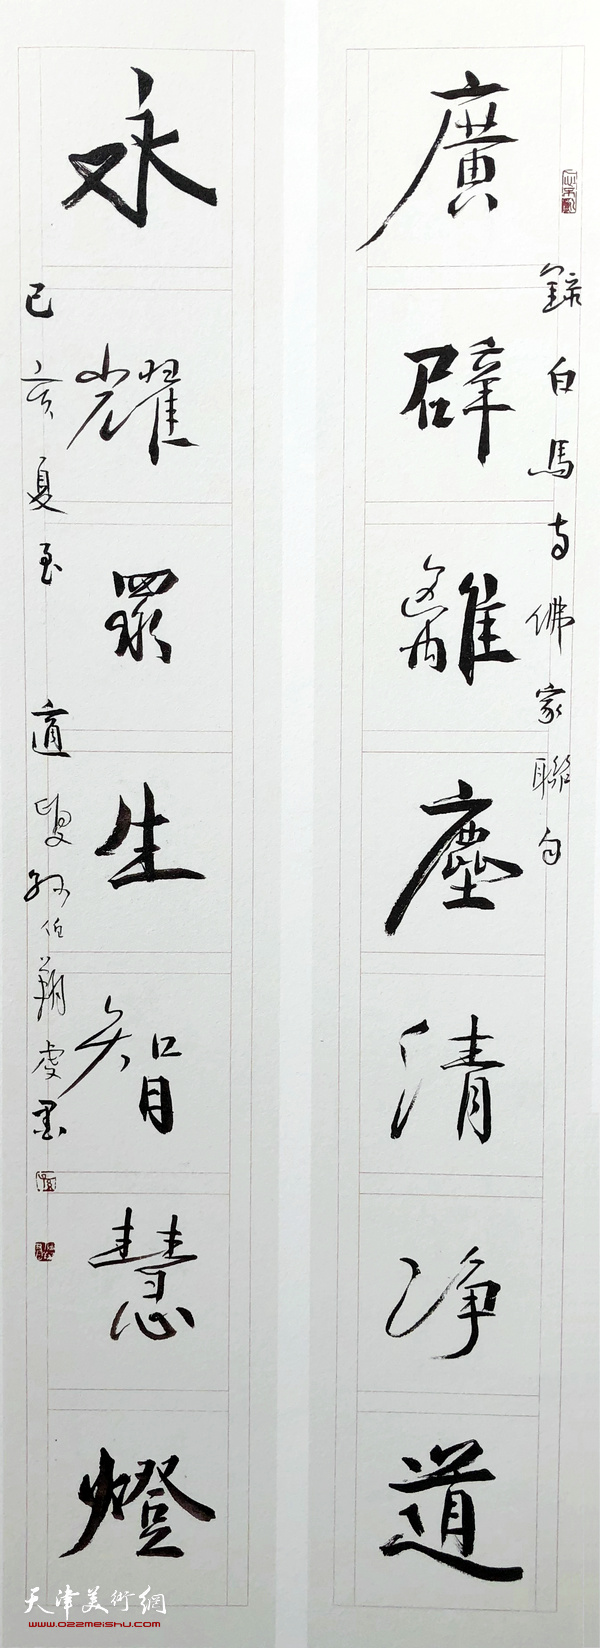 廣闢離塵清净道
錄白馬寺佛家聯句
永耀眾生智慧燈
己亥夏至 適叟孫伯翔虔墨
天津美術網
www.022meishu.com